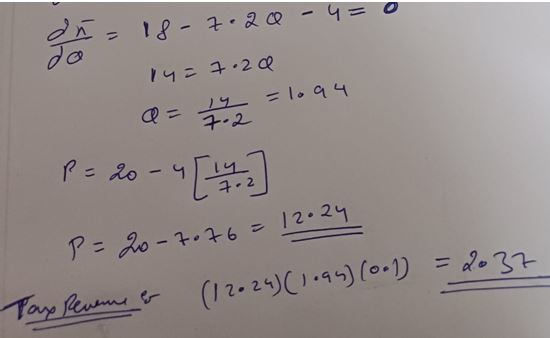 dπ/dQ = 18 - 7.2Q - 4 = 0
14 = 7.2Q
Q = 14/7.2 = 1.94
P = 20 - 4[14/7.2]
P = 20 - 7.76 = 12.24
Tax Revenue (12.24)(1.94)(0.1) = 2.37